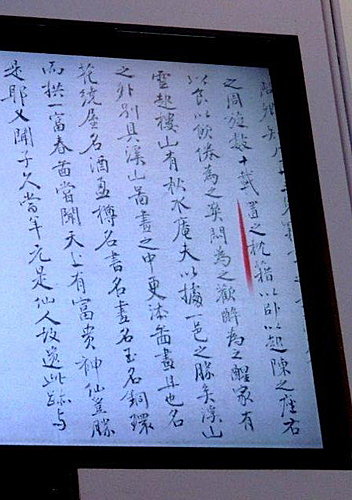 之周旋數十載置之枕藉以臥以起陳之座右
以食以飲倦為之爽悶為之歡醉為之醒家有
雲起樓山有秋水庵夫以據一邑之勝矣溪山
之外別具溪山啚畫之中更添啚畫且也名
花繞屋名酒盈樽名書名畫名玉名銅環
而拱一富春啚嘗聞天上有富貴神仙豈勝
是耶又聞子久當年元是仙人故遺此跡与